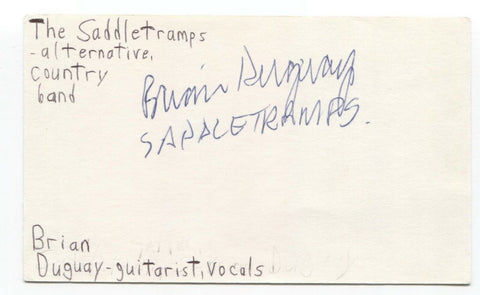 The Saddletramps
-alternative,
country
band
Brian Duguay
SADDLETRAMPS.
Brian
Duguay-guitarist, vocals